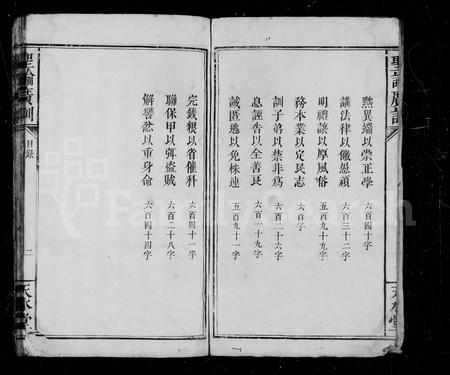 聖諭廣訓
黜異端以崇正學 六百四十字
講法律以儆愚頑 六百三十二字
明禮讓以厚風俗 五百九十九字
務本業以定民志 六百字
訓子弟以禁非爲 六百二十六字
息誣告以全善良 六百一十九字
誡匿逃以免株連 五百九十一字
完錢糧以省催科 六百四十一字
聯保甲以弭盗賊 六百二十八字
解讐忿以重身命 六百四十四字
聖諭廣訓 目錄 二
天水堂
天水堂
FamilySearch